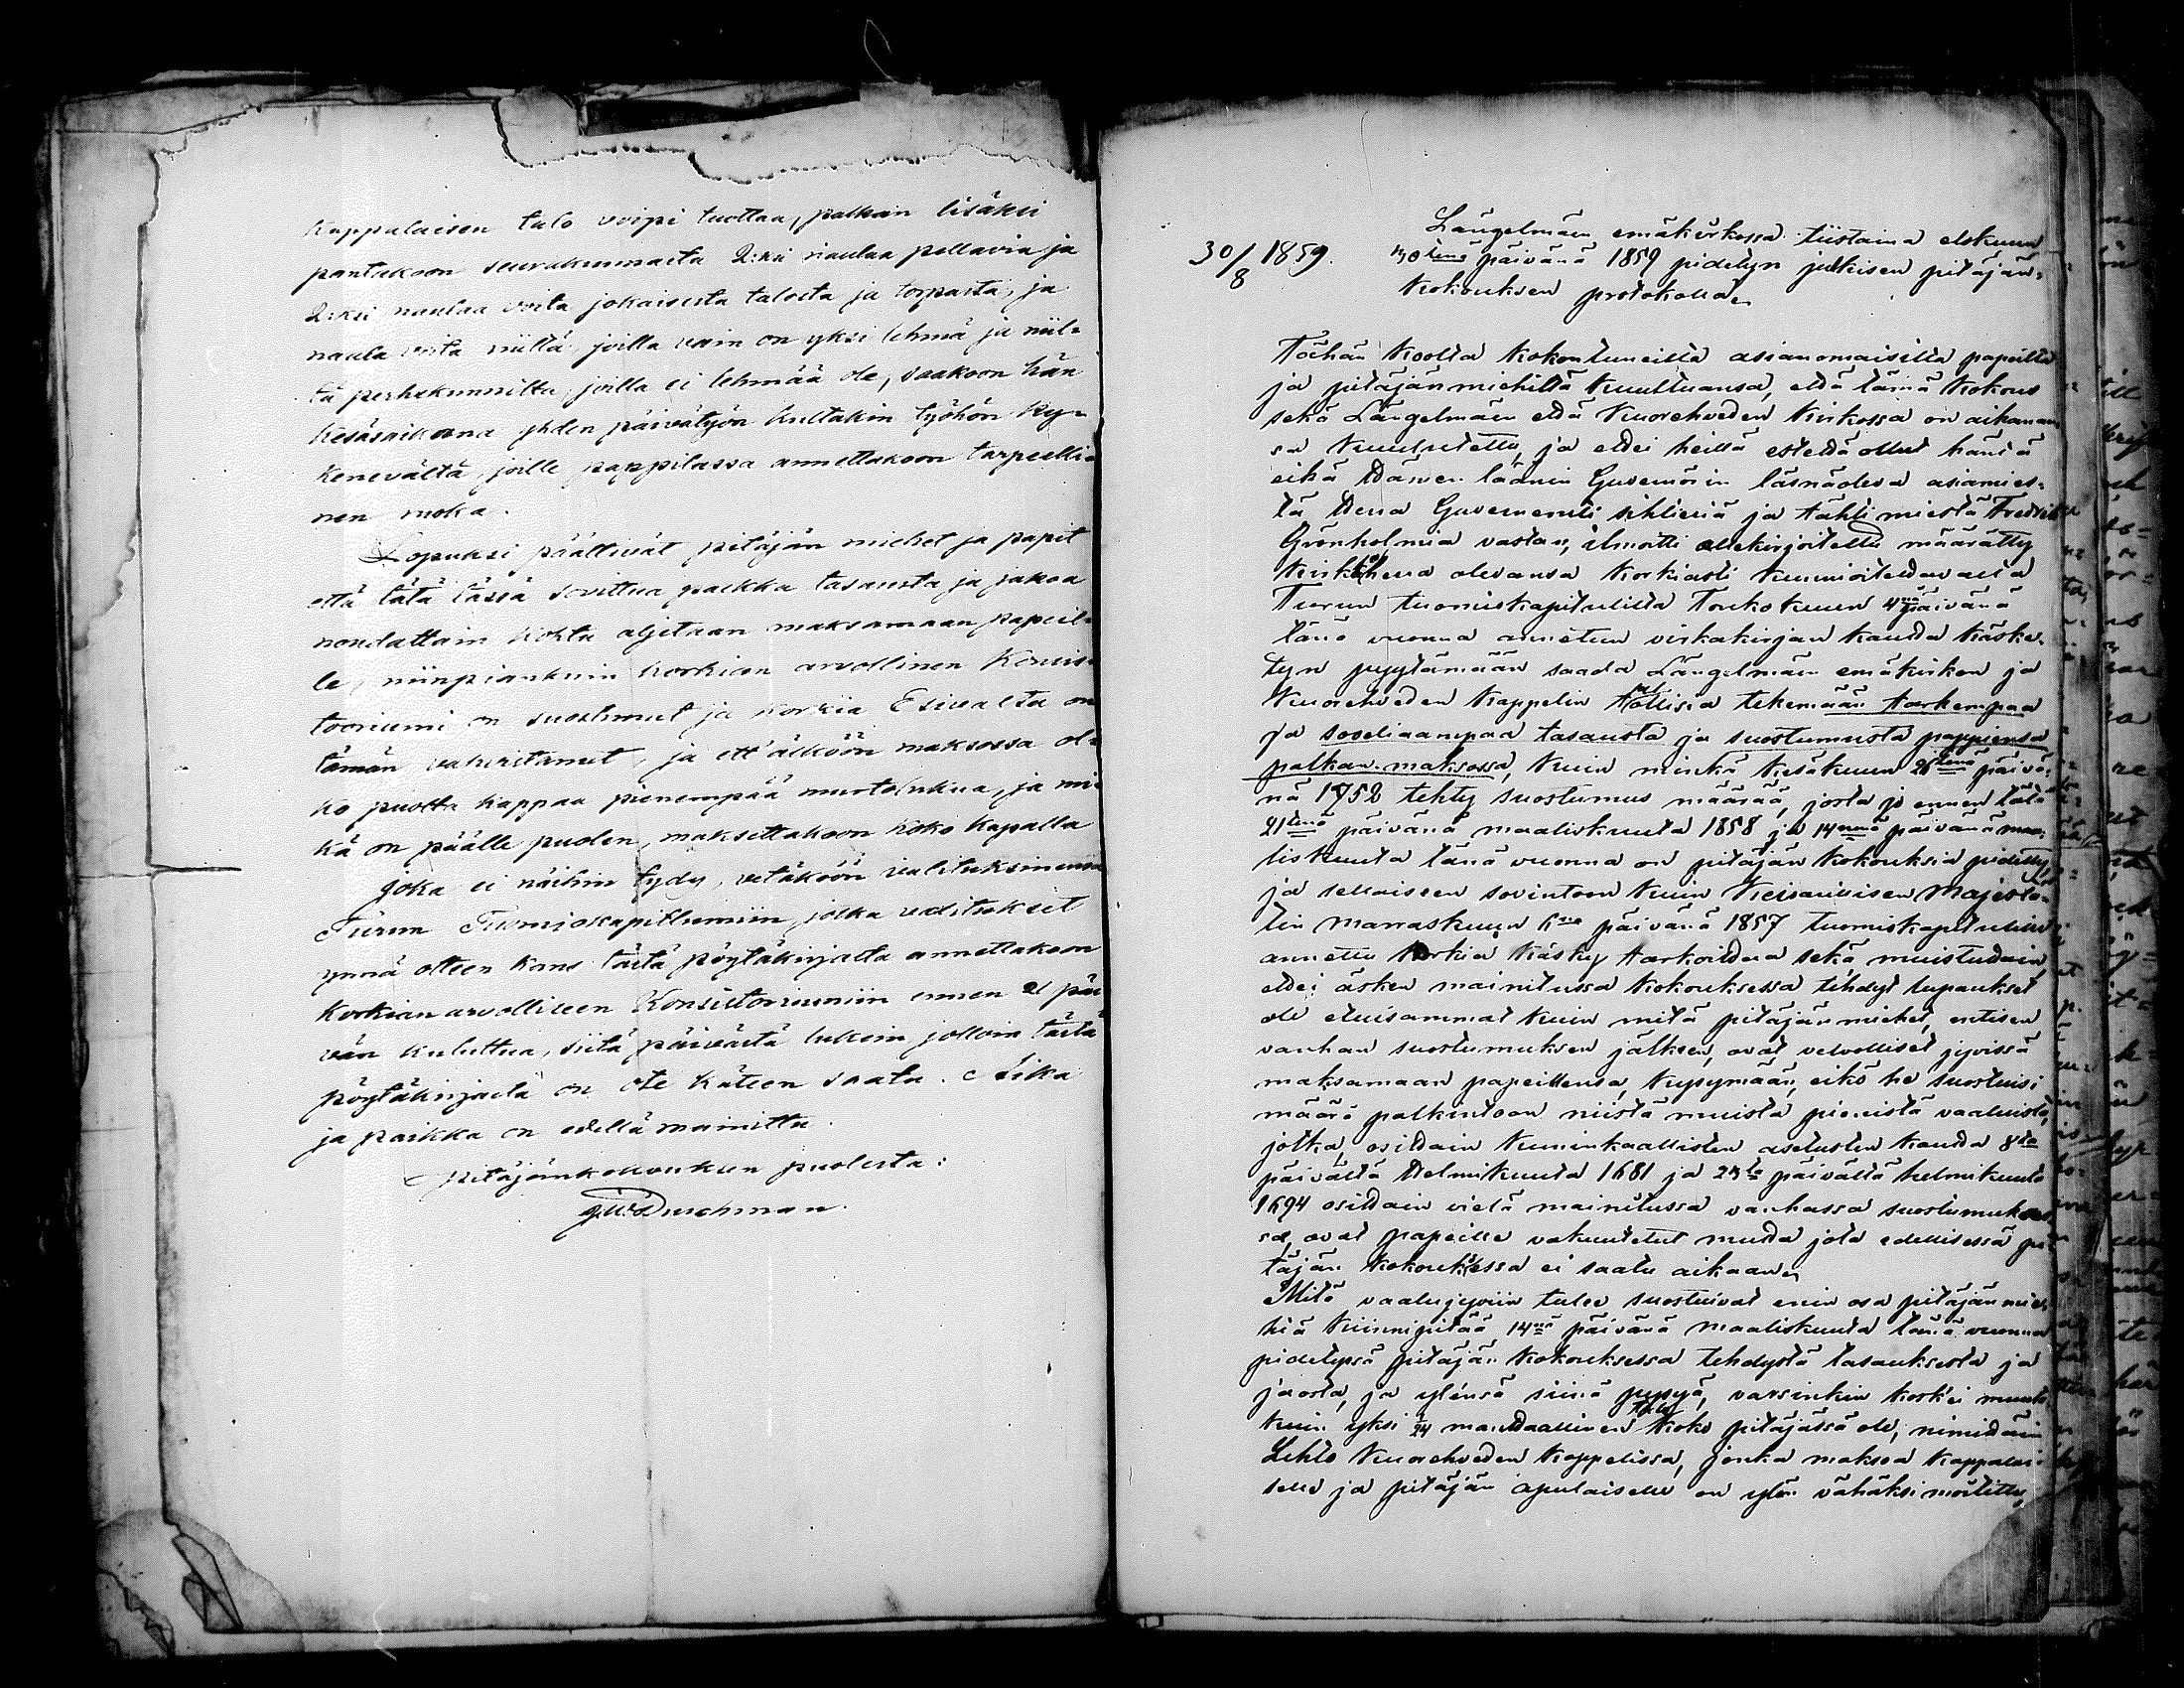 Kappalaisen talo voipi tuottaa, palkan lisäksi
pantakoon seurakunnasta 2:ksi naulaa pellavia ja
2:ksi naulaa voita jokaisesta talosta ja torpasta, ja
naula voita niiltä, joilla vain on yksi lehmä ja niil-
tä perhekunnilta, joilla ei lehmää ole, saakoon hän
kesäsaikana yhden päivätyön kultakin työhön ky-
kenevältä, joille pappilassa annettakoon tarpeelli-
nen ruoka.
Lopuksi päättivät pitäjän miehet ja papit
että tätä tässä sovittua palkka tasausta ja jakoa
noudattain kohta aljetaan maksamaan papeil-
le, niinpiankuin korkian arvollinen Konsis-
toriumi on suostunut ja korkia Esivalta on
tämän vahvistanut, ja ett' älköön maksossa ol-
ko puolta kappaa pienempää murtolukua, ja mi-
kä on päälle puolen, maksettakoon koko kapalla
joka ei näihin tydy, vetäköön valituksinensa
Turun Tuomiokapitlumiin, jotka valitukset
ynnä otteen kans tästä pöytäkirjasta annettakoon
korkian arvolliseen Konsistoriumiin ennen 21 päi
vän kuluttua, siitä päivästä lukein jolloin tästä
pöytäkirjasta on ote käteen saatu. Aika
ja paikka on edellä mainittu.
Pitäjänkokouksen puolesta:
G. W. Durchman.
30/8 1859.
Längelmäen emäkirkossa tiistaina elokuun
30tenä päivänä 1859 pidetyn julkisen pitäjän-
kokouksen protokolla
Tähän koolta kokontuneilta asianomaisilta papeilta
ja pitäjänmiehiltä kuultuansa, että tämä kokous
sekä Längelmäen että Kuoreveden kirkossa on aikanan
sa kuulutettu, ja ettei heillä estettä ollut häntä
eikä Hämeen läänin Guvernörin läsnäoleva asiamies-
tä Herra Guvernementi sihtieriä ja tähtimiestä Fredrik
Grönholmia vastan, ilmoitti allekirjoitettu määrätty
kirkkoherra olevansa korkiasti kunnioitettavalta
Turun tuomiokapitulilta Toukokuun 4nä päivänä
tänä vuonna annetun virkakirjan kautta käske-
tyn pyytämään saada Längelmäen emäkirkon ja
Kuoreveden kappelin tallisia tekemään tarkempaa
ja soveliaampaa tasausta ja suostumusta pappiensa
palkan maksossa, kuin minkä Kesäkuun 26tenä päivä-
nä 1752 tehty suostumus määrää, josta jo ennen tätä
21tenä päivänä maaliskuuta 1858 ja 14nenä päivänä maa-
liskuuta tänä vuonna on pitäjän kokouksia pidetty,
ja sellaiseen sovintoon kuin Keisarivisen Majeste-
tin marraskuun 6na päivänä 1857 tuomiokapitulille
annettu korkia käsky tarkoittaa sekä muistuttain
ettei äsken mainitussa kokouksessa tehdyt lupaukset
ole etuisammat kuin mitä pitäjänmiehet, entisen
vanhan suostumuksen jälkeen, ovat velvolliset jyvissä
maksamaan papeillensa, kysymään, eikö he suostuisi
määrä palkintoon niistä muista pienistä vaaluista,
jotka, osittain kuninkaallisten asetusten kautta 8ta
päivältä Helmikuuta 1681 ja 23ta päivältä helmikuuta
1694 osittain vielä mainitussa vanhassa suostumukses
sa, ovat papeille vakuutetut mutta jota edellisessä pi-
täjän kokouksessa ei saatu aikaan
Mitä vaalujyviin tulee suostuivat enin osa pitäjänmie-
hiä kiinnipitää 14nä päivänä maaliskuuta tänä vuonna
pidetyssä pitäjän kokouksessa tehdystä tasauksesta ja
jaosta, ja ylensä siinä pysyä, varsinkin kosk'ei muuta
kuin yksi 1/24 manttaallinen talo koko pitäjässä ole, nimittäin
Lehto Kuoreveden kappelissa, jonka maksoa kappalai-
selle ja pitäjän apulaiselle on ylön vähäksi moitittu,